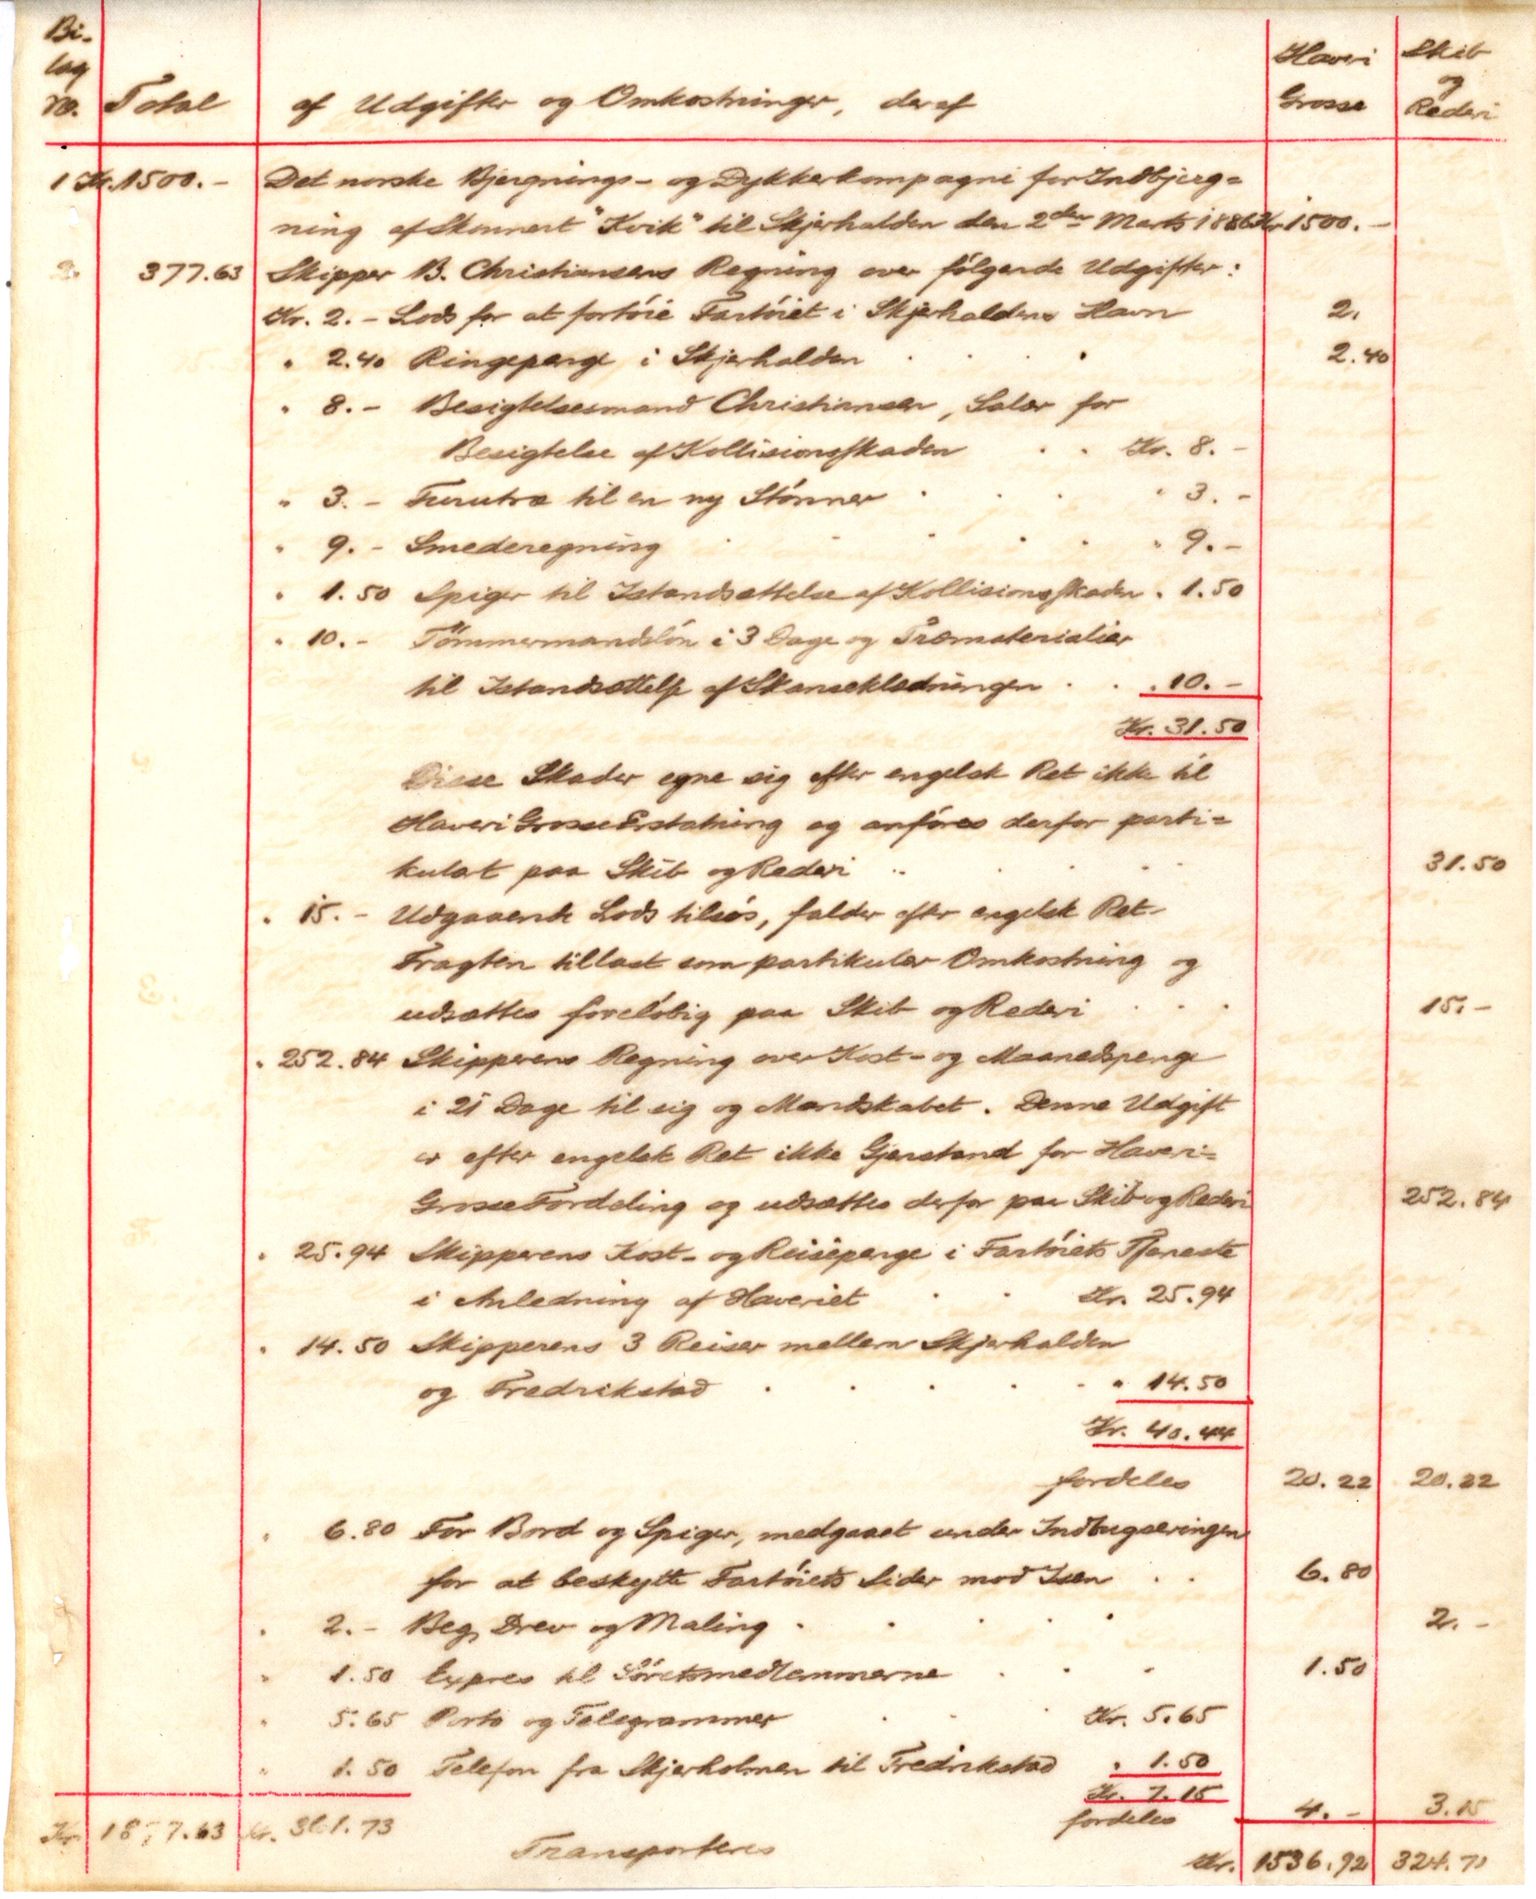 Bi-
lag
No. Total af Udgifter og Omkostninger, deraf Haveri Grosse Skib og Rederi
1 Kr. 1500.- Det norske Bjergnings- og Dykkerkompagni for Indbjerg=
ning af Skonnert "Kvik" til Skjærhalden den 2den Marts 1886 Kr 1500.-
2. 377.63 Skipper B. Christiansens Regning over følgende Udgifter:
Kr. 2.- Lods for at fortöie Fartöiet i Skjærhaldens Havn 2.
" 2.40 Ringepenge i Skjærhalden 2.40
" 8.- Besigtelsesmand Christiansen, Salær for
Besigtelse af Kollisionsskaden Kr. 8.-
" 3.- Furutræ til en ny Stönner " 3.-
" 9.- Smederegning " 9.-
" 1.50 Spiger til Istandsættelse af Kollisionsskaden " 1.50
" 10.- Tömmermandslön i 3 Dage og Træmaterialier
til Istandsættelse af Skanseklædningen " 10.-
Kr. 31.50
Disse Skader egne sig efter engelsk Ret ikke til
Haveri Grosse Erstatning og anföres derfor parti=
kulært paa Skib og Rederi 31.50
" 15.- Udgaaende Lods tilsös, falder efter engelsk Ret
Fragten tillast som partikulær Omkostning og
udsættes forelöbig paa Skib og Rederi 15.-
" 252.84 Skipperens Regning over Kost- og Maanedspenge
i 21 Dage til sig og Mandskabet. Denne Udgift
er efter engelsk Ret ikke Gjenstand for Haveri=
Grosse Fordeling og udsættes derfor paa Skib og Rederi 252.84
" 25.94 Skipperens Kost- og Reisepenge i Fartöiets Tjeneste
i Anledning af Haveriet Kr. 25.94
" 14.50 Skipperens 3 Reiser mellem Skjærhalden
og Fredrikstad " 14.50
Kr. 40.44
fordeles 20.22 20.22
" 6.80 For Bord og Spiger, medgaaet under Indbugseringen
for at beskytte Fartöiets Sider mod Isen 6.80
" 2.- Beg, Drev og Maling 2.-
" 1.50 Expres til Söretsmedlemmerne 1.50
" 5.65 Porto og Telegrammer Kr. 5.65
" 1.50 Telefon fra Skjærholmen til Fredrikstad " 1.50
Kr. 7.15
fordeles 4.- 3.15
Kr. 1877.63 Kr. 361.73 Transporteres Kr. 1536.92 324.71